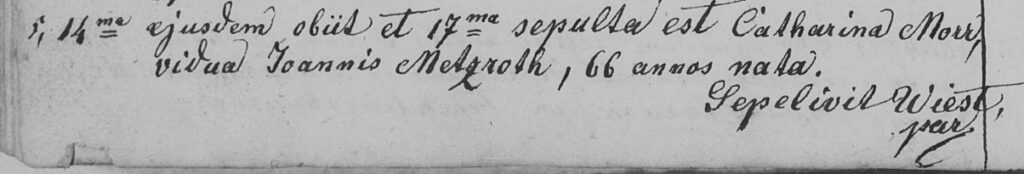 5, 14ma ejusdem obiit et 17ma sepulta est Catharina Morr,
vidua Joannis Metzroth, 66 annos nata.
Sepelivit Wiest,
par.